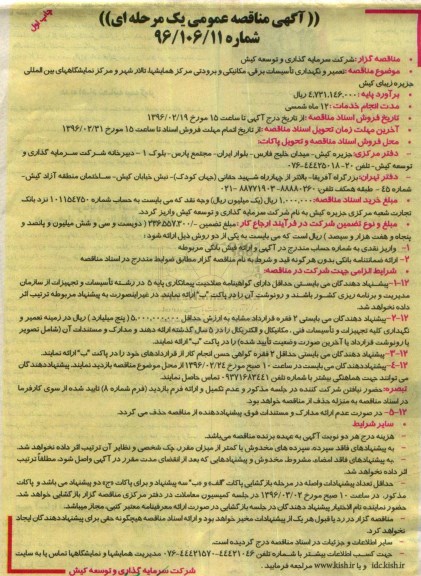 (( آگهی مناقصه عمومی یک مرحله ای))
چاپ اول
شماره ۹۶/۱۰۶/۱۱
مناقصه گزار: شرکت سرمایه گذاری و توسعه کیش
موضوع مناقصه: تعمیر و نگهداری تأسیسات برقی، مکانیکی و برودتی مرکز همایشها، تالار شهر و مرکز نمایشگاههای بین المللی
جزیره زیبای کیش
برآورد پایه: ۴،۷۳۱،۱۴۶،۰۰۰ ریال
مدت انجام خدمات: ۱۲ ماه شمسی
تاریخ فروش اسناد مناقصه: از تاریخ درج آگهی تا ساعت ۱۵ مورخ ۱۳۹۶/۰۲/۱۹
آخرین مهلت زمان تحویل اسناد مناقصه: از تاریخ اتمام مهلت فروش اسناد تا ساعت ۱۵ مورخ ۱۳۹۶/۰۲/۳۱
محل فروش اسناد مناقصه و تحویل پاکات:
دفتر مرکزی: جزیره کیش- میدان خلیج فارس- بلوار ایران- مجتمع پارس- بلوک ۱- دبیرخانه شرکت سرمایه گذاری و
توسعه کیش- تلفن: ۲۰-۴۴۴۲۵۰۱۸-۰۷۶
دفتر تهران: بزرگراه آفریقا- بالاتر از چهارراه شهید حقانی (جهان کودک)- نبش خیابان کیش- ساختمان منطقه آزاد کیش-
شماره ۴۵- طبقه هفدهم تلفن: ۲۶۰-۸۸۸۸۰ ۸۸۷۷۱۹۰۳-۰۲۱
مبلغ خرید اسناد مناقصه: ۱،۰۰۰،۰۰۰ ریال (یک میلیون ریال) وجه نقد که می بایست به حساب شماره ۱۰۱۱۵۴۷۵۰ نزد بانک
تجارت شعبه مرکزی جزیره کیش به نام شرکت سرمایه گذاری و توسعه کیش واریز گردد.
مبلغ و نوع تضمین شرکت در فرآیند ارجاع کار: مبلغ تضمین ۲۳۶،۵۵۷،۳۰۰/- (دویست و سی و شش میلیون و پانصد و
پنجاه و هفت هزار و سیصد) ریال است که می بایست به یکی از دو روش ذیل ارائه شود:
۱- واریز نقدی به شماره حساب مندرج در آگهی و ارائه فیش بانکی مربوطه
۲- ارائه ضمانتنامه بانکی بدون هر گونه قید و شرط به نام مناقصه گزار مطابق ضوابط مندرج در اسناد مناقصه
شرایط الزامی جهت شرکت در مناقصه:
۱-۱۲- پیشنهاد دهندگان می بایستی حداقل دارای گواهینامه صلاحیت پیمانکاری پایه ۵ در رشته تأسیسات و تجهیزات از سازمان
مدیریت و برنامه ریزی کشور باشند و رونوشت آن را در پاکت "ب" ارائه نمایند. در غیر اینصورت به پیشنهاد مربوطه ترتیب اثر
داده نخواهد شد.
۲-۱۲- پیشنهاد دهندگان می بایستی ۲ فقره قرارداد مشابه به ارزش حداقل ۵،۰۰۰،۰۰۰،۰۰۰ (پنج میلیارد) ریال در زمینه تعمیر و
نگهداری کلیه تجهیزات و تأسیسات فنی، مکانیکال و الکتریکال را در ۵ سال گذشته ارائه دهند و مدارک و مستندات آن (شامل تصویر
یا رونوشت قرارداد یا آخرین صورت وضعیت تأیید شده) را در پاکت "ب" ارائه نمایند.
۳-۱۲- پیشنهاد دهندگان می بایستی حداقل ۲ فقره گواهی حسن انجام کار از قراردادهای خود را در پاکت "ب" ارائه نمایند.
۴-۱۲- پیشنهاددهندگان می بایست در ساعت ۱۰ صبح مورخ ۱۳۹۶/۰۲/۲۴ از محل موضوع مناقصه بازدید نمایند. پیشنهاددهندگان
می توانند جهت هماهنگی بیشتر با شماره تلفن ۰۹۳۷۱۶۸۳۴۴۱ تماس حاصل نمایند.
تبصره: حضور نیافتن شرکت کننده در جلسه مذکور و عدم تکمیل و ارائه فرم بازدید (فرم شماره ۸) تایید شده از سوی کارفرما
در اسناد مناقصه به منزله حذف از مناقصه خواهد بود.
۵-۱۲- در صورت عدم ارائه مدارک و مستندات فوق، پیشنهاددهنده از مناقصه حذف می گردد.
سایر شرایط
هزینه درج هر دو نوبت آگهی به عهده برنده مناقصه می‌باشد.
به پیشنهادهای فاقد سپرده، سپرده های مخدوش یا کمتر از میزان مقرر، چک شخصی و نظایر آن ترتیب اثر داده نخواهد شد.
به پیشنهادهای فاقد امضاء، مشروط، مخدوش و پیشنهادهایی که بعد از انقضای مدت مقرر در آگهی واصل شود، مطلقاً ترتیب
اثر داده نخواهد شد.
حداقل تعداد پیشنهادات واصله در مرحله بازگشایی پاکات "الف" و "ب" سه پیشنهاد و برای پاکات "ج" دو پیشنهاد می باشد و پاکات
مذکور، در ساعت ۱۰ صبح مورخ ۱۳۹۶/۰۳/۰۲ در جلسه کمیسیون معاملات در دفتر مرکزی مناقصه گزار بازگشایی خواهد شد.
حضور نماینده تام الاختیار پیشنهاد دهندگان در جلسه بازگشایی در صورت ارائه معرفینامه معتبر کتبی، مجاز میباشد.
مناقصه گزار در رد یا قبول هر یک از پیشنهادات مخیر خواهد بود و ارائه اسناد مناقصه هیچگونه حقی برای پیشنهاددهندگان ایجاد
نخواهد کرد.
سایر اطلاعات و جزئیات در اسناد مناقصه درج گردیده است.
جهت کسب اطلاعات بیشتر با شماره تلفن ۴۴۴۲۱۰۴۶-۴۴۴۲۱۵۷۰-۰۷۶ مدیریت همایشها و نمایشگاهها تماس یا به سایت
idc.kish.ir و یا www.kish.ir مرتجعه فرمایید.
شرکت سرمایه گذاری و توسعه کیش